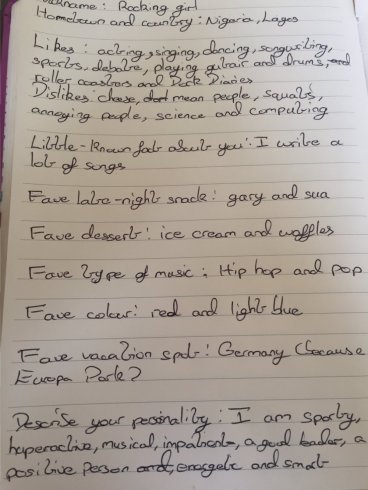 name: Rocking girl
Hometown and country: Nigaria, Lagos
Likes: acting, singing, dancing, songwriting,
sports, debate, playing gutrair and drums, and
roller coasters and Dork Diaries
Dislikes: cheese, mean people, squats,
annoying people, science and computing
Little-known fact about you: I write a
lot of songs
Fave late-night snack: gary and sua
Fave dessert: ice cream and waffles
Fave type of music: Hip hop and pop
Fave colour: red and light blue
Fave vacation spot: Germany (because
Europa Park?
Describe your personility: I am sporty,
hyperactive, musical, impatient, a good leader, a
posisitive person and, energetic and smart